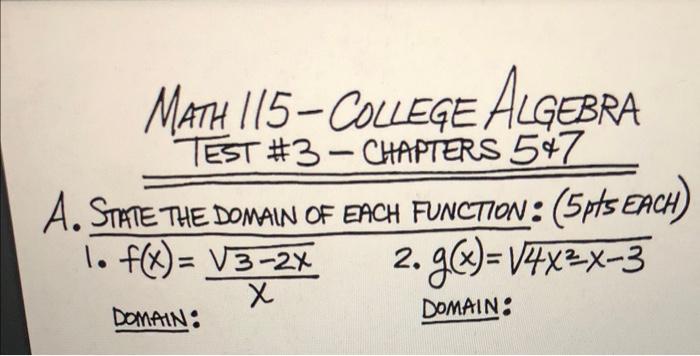 MATH 115-COLLEGE ALGEBRA
TEST #3 - CHAPTERS 5&7
A. STATE THE DOMAIN OF EACH FUNCTION: (5pts EACH)
1. f(x)= √3-2x / x 2. g(x)=√4x²-x-3
DOMAIN: DOMAIN: